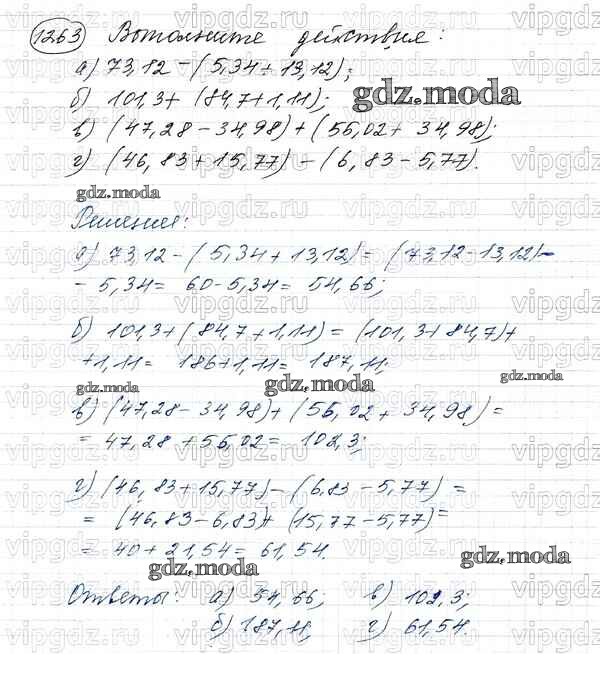 1263 Выполните действия:
а) 73,12 - (5,34 + 13,12);
б) 101,3 + (84,7 + 1,11);
в) (47,28 - 34,98) + (55,02 + 34,98);
г) (46,83 + 15,77) - (6,83 - 5,77).
Решение:
а) 73,12 - (5,34 + 13,12) = (73,12 - 13,12) -
- 5,34 = 60 - 5,34 = 54,66;
б) 101,3 + (84,7 + 1,11) = (101,3 + 84,7) +
+ 1,11 = 186 + 1,11 = 187,11;
в) (47,28 - 34,98) + (55,02 + 34,98) =
= 47,28 + 55,02 = 102,3;
г) (46,83 + 15,77) - (6,83 - 5,77) =
= (46,83 - 6,83) + (15,77 - 5,77) =
= 40 + 21,54 = 61,54.
Ответы: а) 54,66; в) 102,3;
б) 187,11; г) 61,54.
gdz.moda
gdz.moda
gdz.moda
gdz.moda
gdz.moda
gdz.moda
gdz.moda
vipgdz.ru